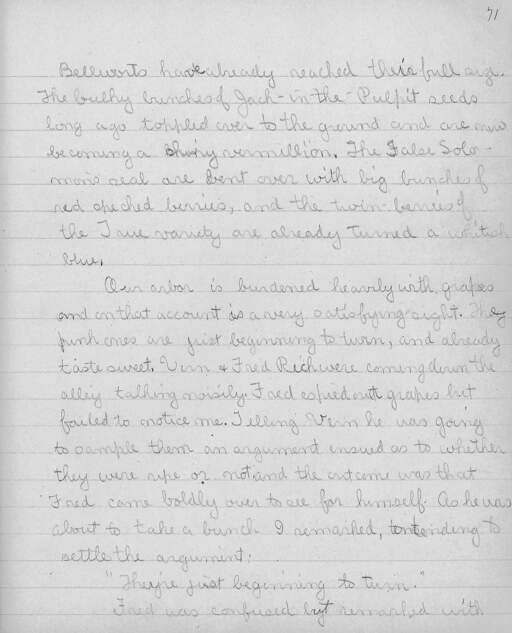 71
Bellworts have already reached their full size.
The bulky bunches of Jack-in-the-Pulpit seeds
long ago toppled over to the ground and are now
becoming a shiny vermillion. The False Solo-
mon's seal are bent over with big bunches of
red specked berries, and the twin-berries of
the True variety are already turned a whitish
blue.
Our arbor is burdened heavily with grapes
and on that account is a very satisfying sight. The
pink ones are just beginning to turn, and already
taste sweet. Vern & Fred Rich were coming down the
alley talking noisily. Fred espied our grapes but
failed to notice me. Telling Vern he was going
to sample them an argument insued as to whether
they were ripe or not and the outcome was that
Fred came boldly over to see for himself. As he was
about to take a bunch I remarked, intending to
settle the argument:
"They're just beginning to turn."
Fred was confused but remarked with